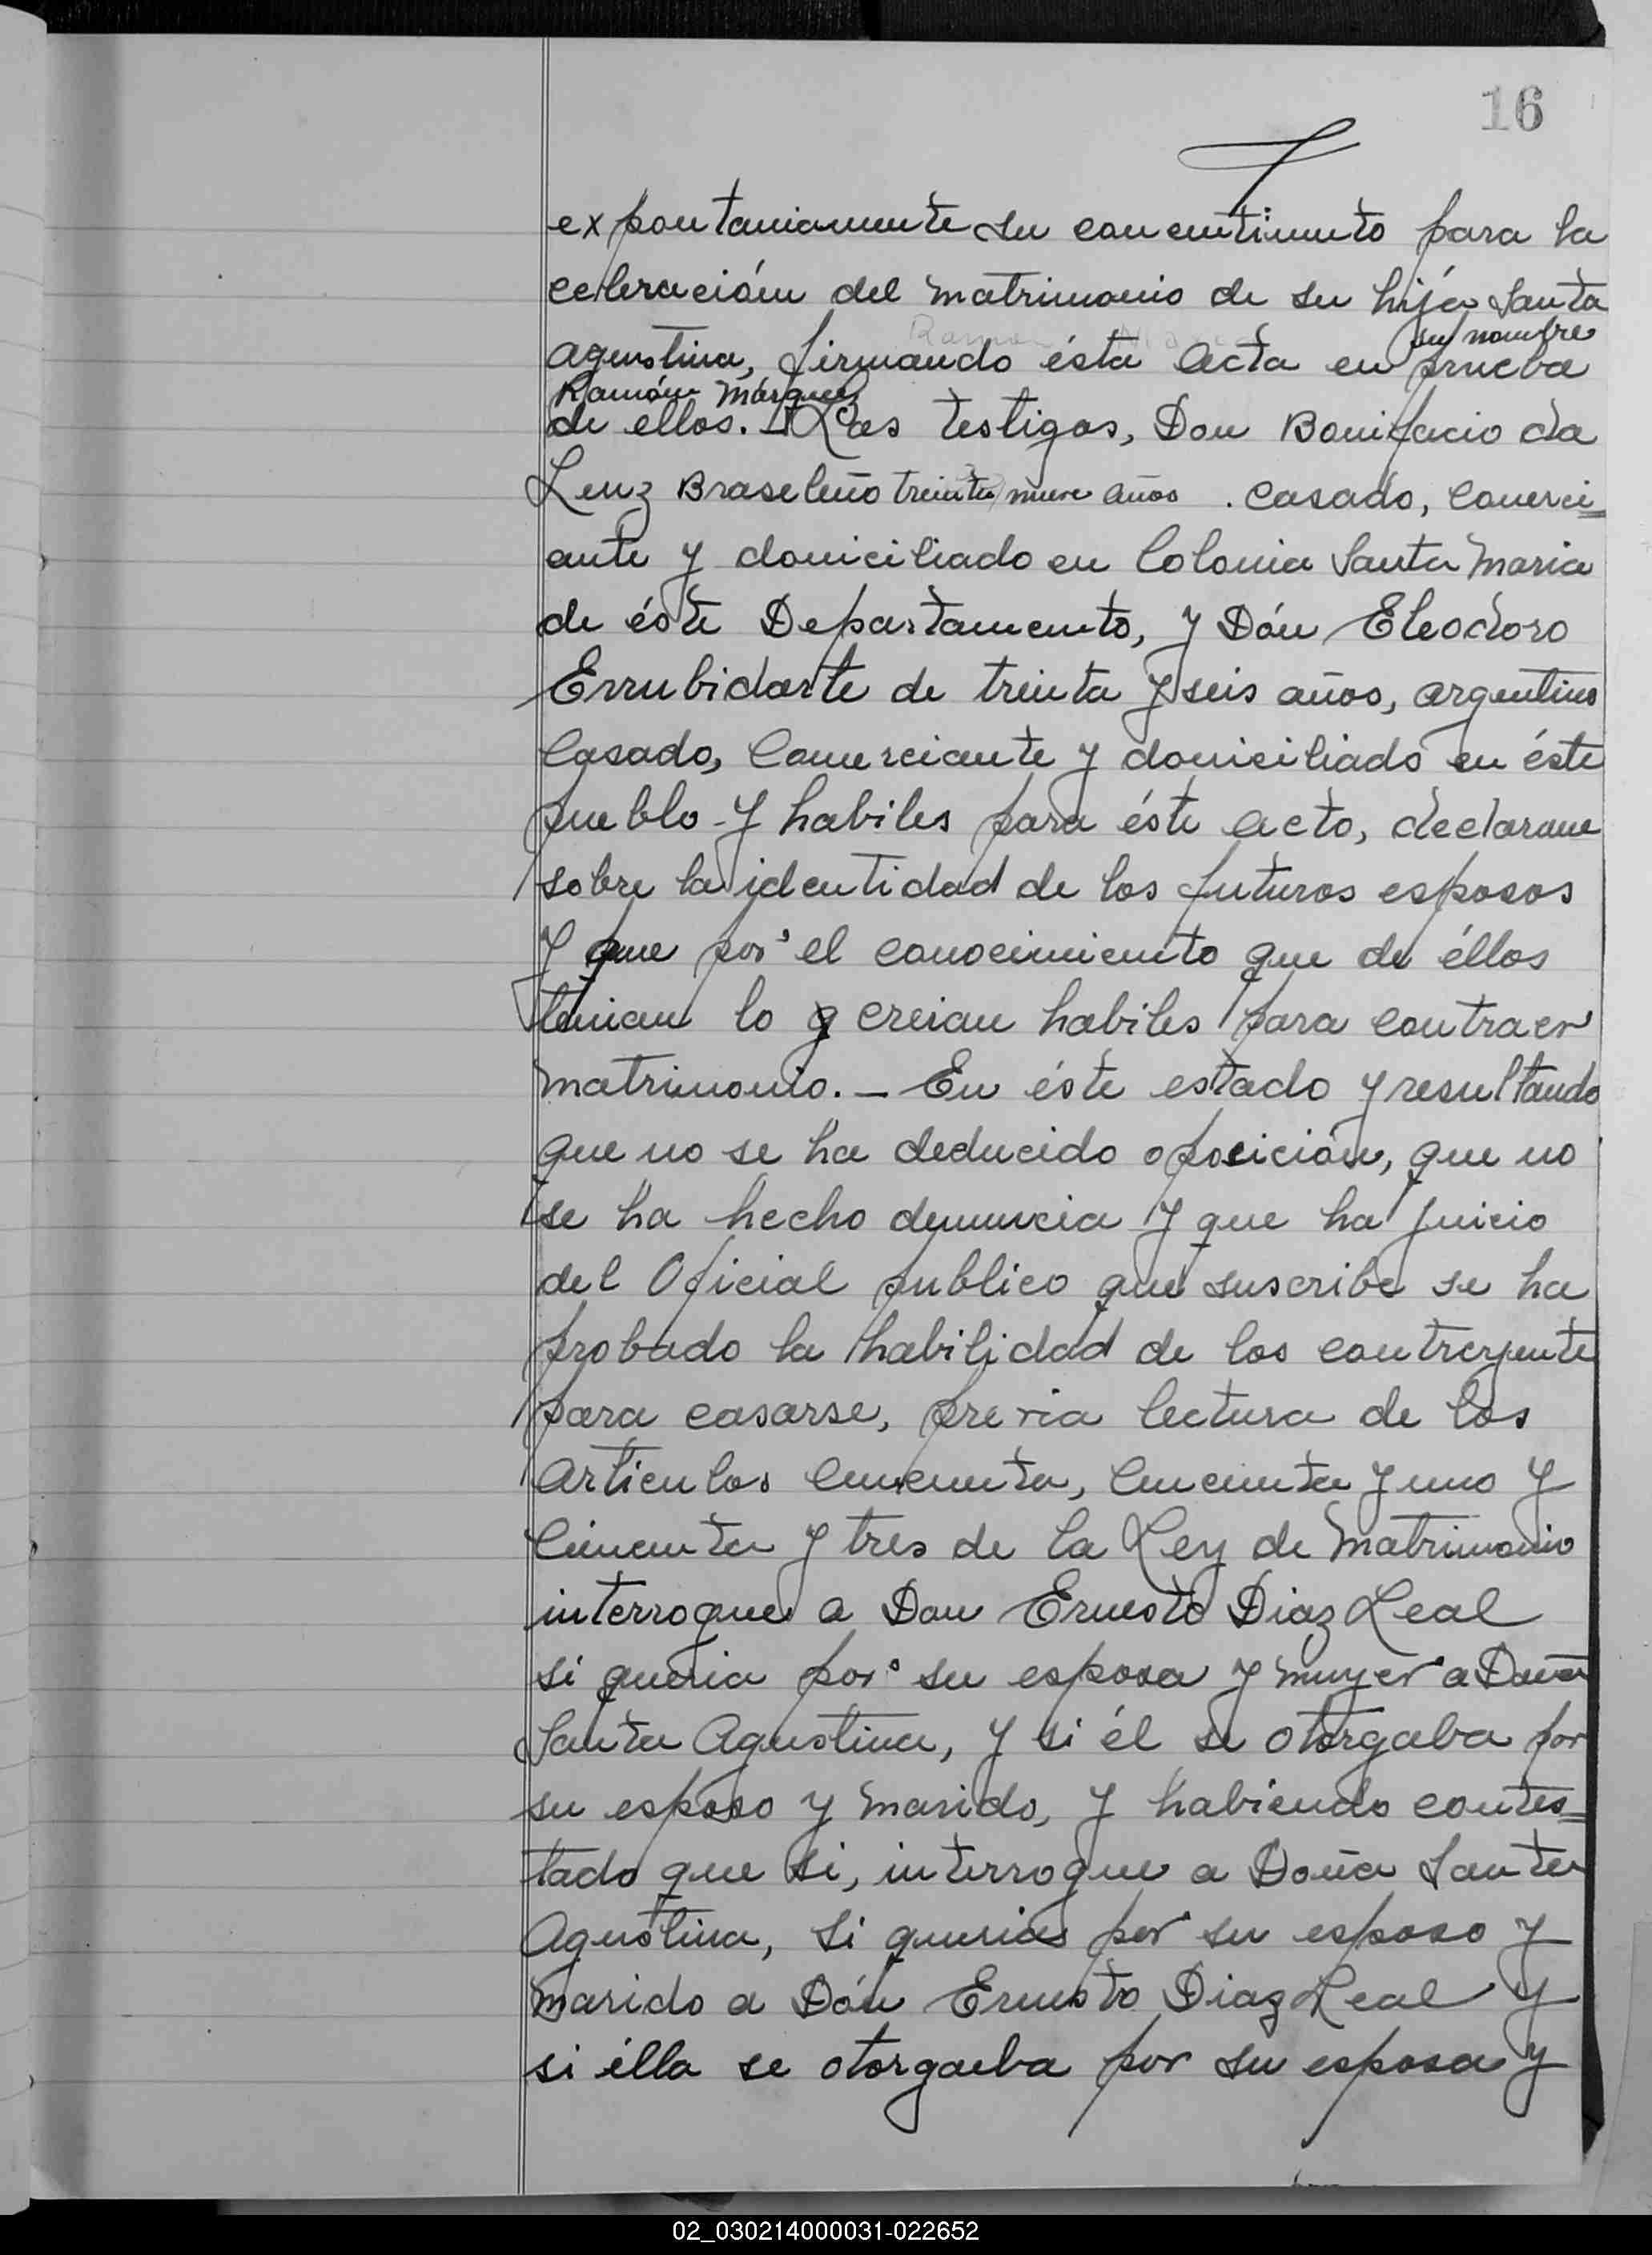 16
expontaniamente su consentimiento para la
celeración del matrimonio de su hija Santa
su nombre
Agustina, firmando ésta acta en prueba
Ramón Márquez
de ellos. - Los testigos, Don Bonifacio da
Luz Braseleño treinta nueve años . casado, comerci=
ante y domiciliado en Colonia Santa Maria
de éste Departamento, y Dón Eleodoro
Errubidarte de treinta y seis años, argentino
Casado, Comerciante y domiciliado en éste
pueblo - y habiles para éste acto, declarane
sobre la identidad de los futuros esposos
y que por el conocimiento que de éllos
tenian lo creian habiles para contraer
matrimonio. - En éste estado y resultando
que no se ha deducido oposición, que no
se ha hecho denuncia y que ha juicio
del Oficial publico que suscribe se ha
probado la habilidad de los contreyente
para casarse, previa lectura de los
articulos cincuenta, cincuenta y uno y
Cincuenta y tres de la Ley de Matrimonio
interrogue a Don Ernesto Diaz Leal
si queria por su esposa y muyer a Doña
Santa Agustina, y si él se otorgaba por
su esposo y marido, y habiendo contes=
tado que si, interrogue a Doña Santa
Agustina, si queria por su esposo y
marido a Dón Ernesto Diaz Leal y
si élla se otorgaba por su esposa y
02_030214000031-022652